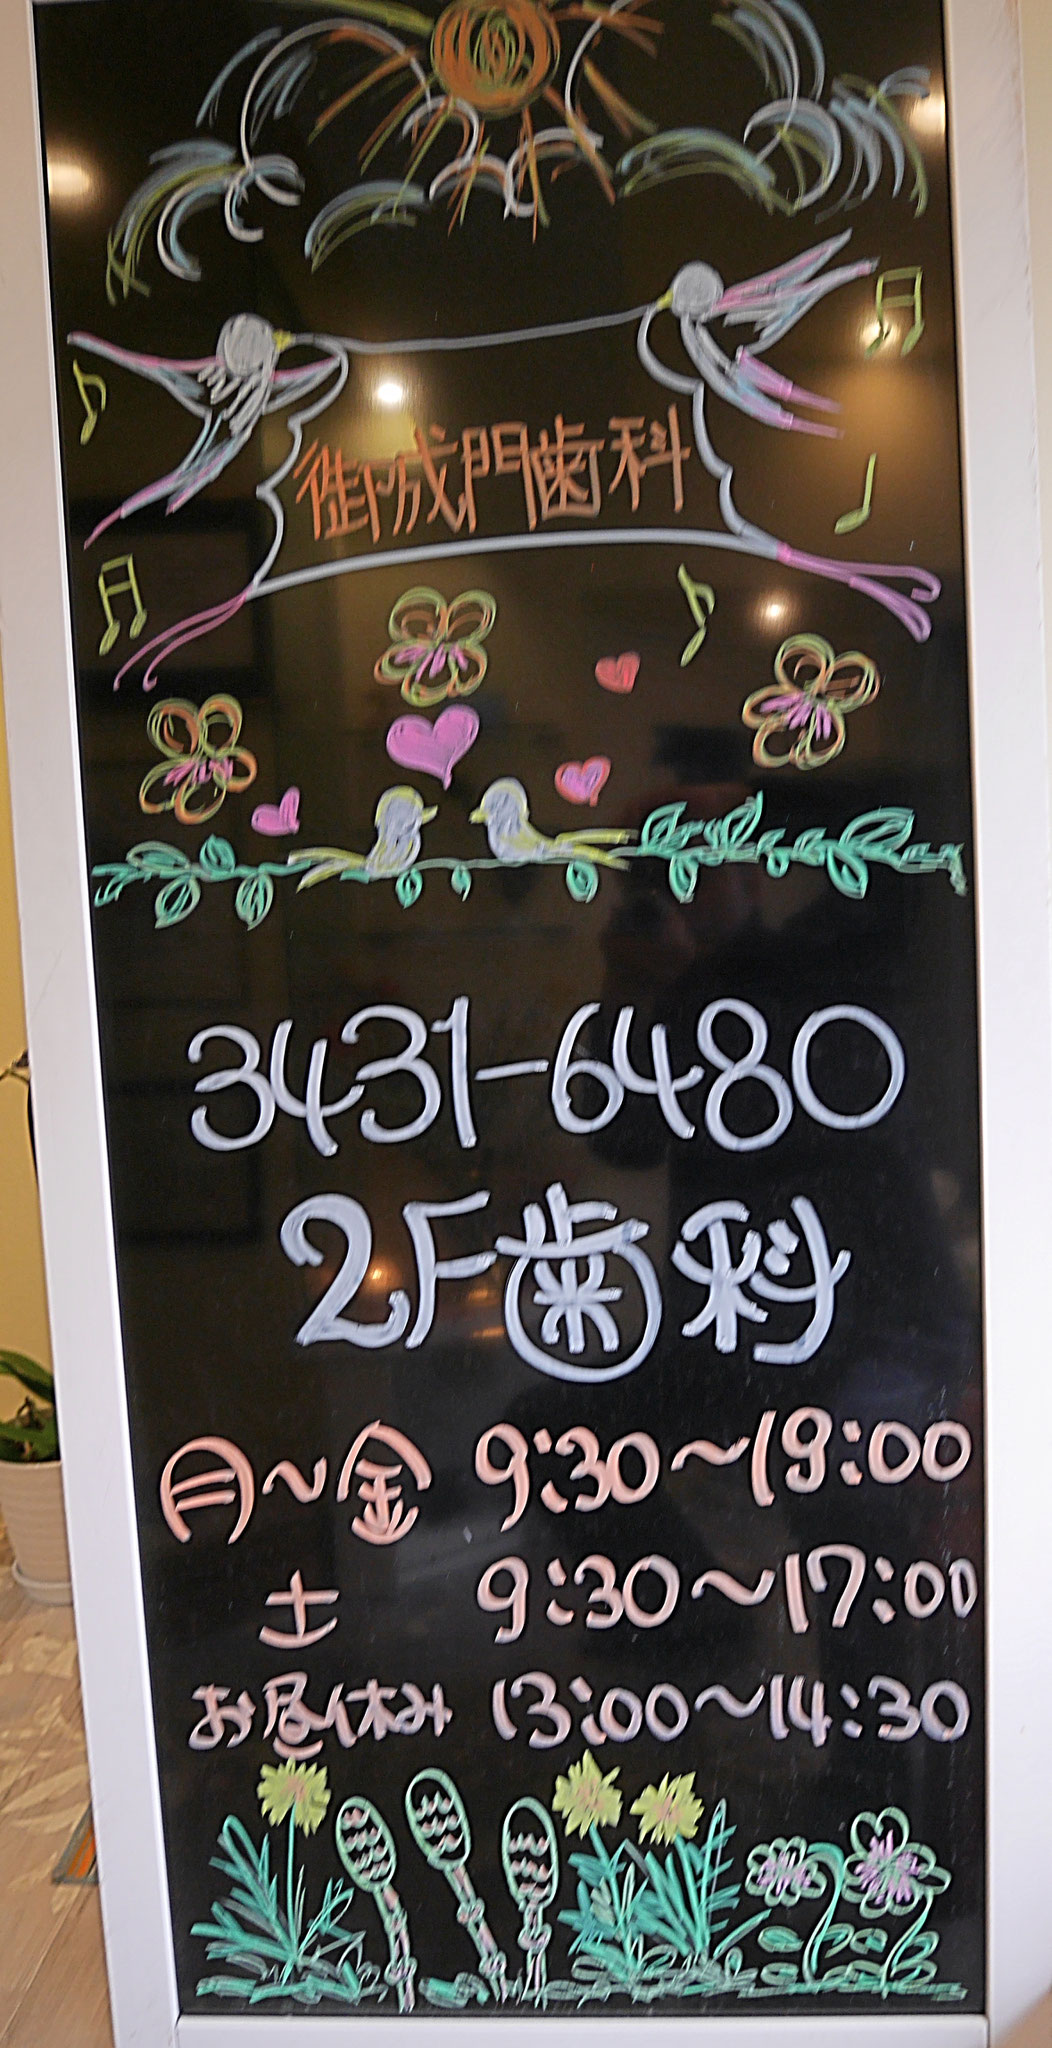 御成門歯科
3431-6480
2F歯科
月〜金 9:30〜19:00
土 9:30〜17:00
お昼休み 13:00〜14:30